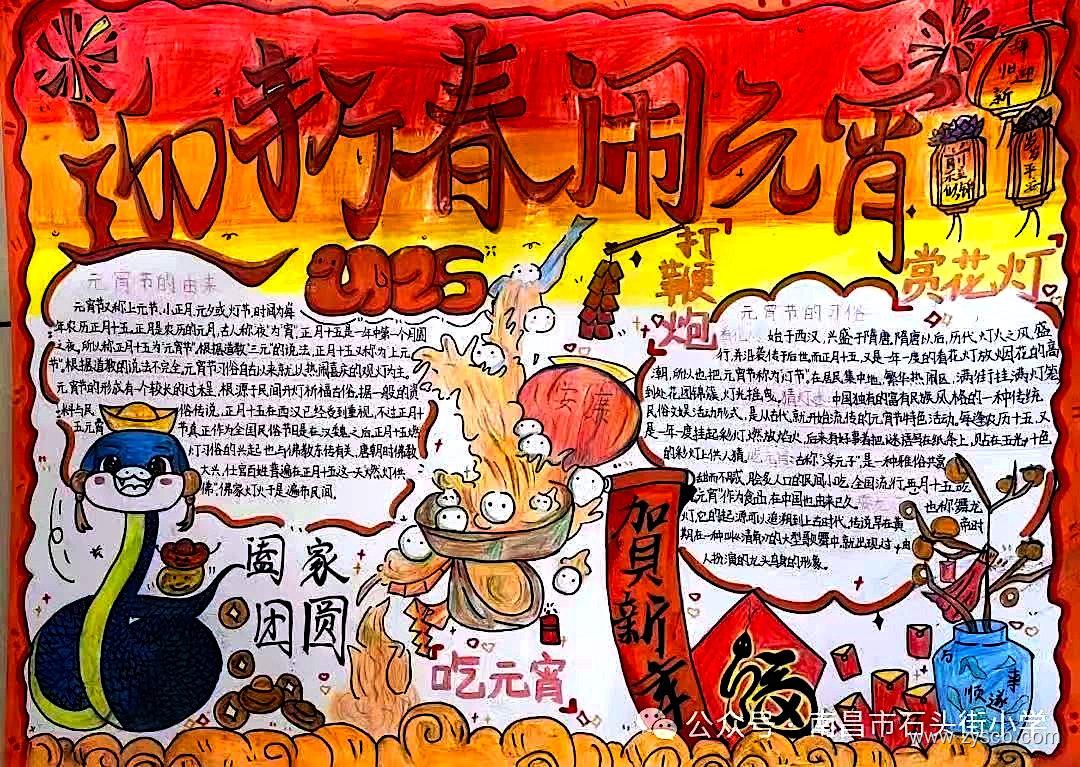 迎新春闹元宵
辞旧迎新
平安
2025
打鞭炮
赏花灯
元宵节的由来
元宵节又称上元节、小正月、元夕或灯节,时间为每
年农历正月十五,正月是农历的元月,古人称"夜"为"宵",正月十五是一年中第一个月圆
之夜,所以称正月十五为"元宵节"。根据道教"三元"的说法,正月十五又称为"上元
节"。根据道教的说法不完全,元宵节习俗自古以来就以热闹喜庆的观灯为主。
元宵节的形成有一个较长的过程,根源于民间开灯祈福古俗,据一般的资
料与民俗传说,正月十五在西汉已经受到重视,不过正月十
五元宵节真正作为全国民俗节日是在汉魏之后,正月十五燃
灯习俗的兴起也与佛教东传有关,唐朝时佛教
大兴,仕官百姓普遍在正月十五这一天"燃灯供
佛",佛家灯火于是遍布民间。
元宵节的习俗
看花灯:始于西汉,兴盛于隋唐,隋唐以后,历代灯火之风盛
行,并沿袭传于后世,而正月十五,又是一年一度的看花灯放烟花的高
潮,所以也把元宵节称为"灯节"。在居民集中地,繁华热闹区,满街挂满灯笼
到处花团锦簇,灯光摇曳。猜灯谜:中国独有的富有民族风格的一种传统
民俗文娱活动形式,是从古代就开始流传的元宵节特色活动,每逢农历十五,又
是一年一度挂起彩灯,燃放焰火,后来有好事者把谜语写在纸条上,贴在五光十色
的彩灯上供人猜。吃元宵:古称"浮元子",是一种雅俗共赏
甜而不腻,脍炙人口的民间小吃,全国流行,每月十五吃
元宵"作为食品,在中国也由来已久。
也称舞龙
灯,它的起源可以追溯到上古时代,传说早在黄帝时
期在一种叫《清角》的大型歌舞中,就出现过由
人扮演的龙头鸟身的形象。
安康
阖家
团圆
吃元宵
贺新年
福
万事
顺遂
公众号·南昌市石头街小学
www.zyscb.com